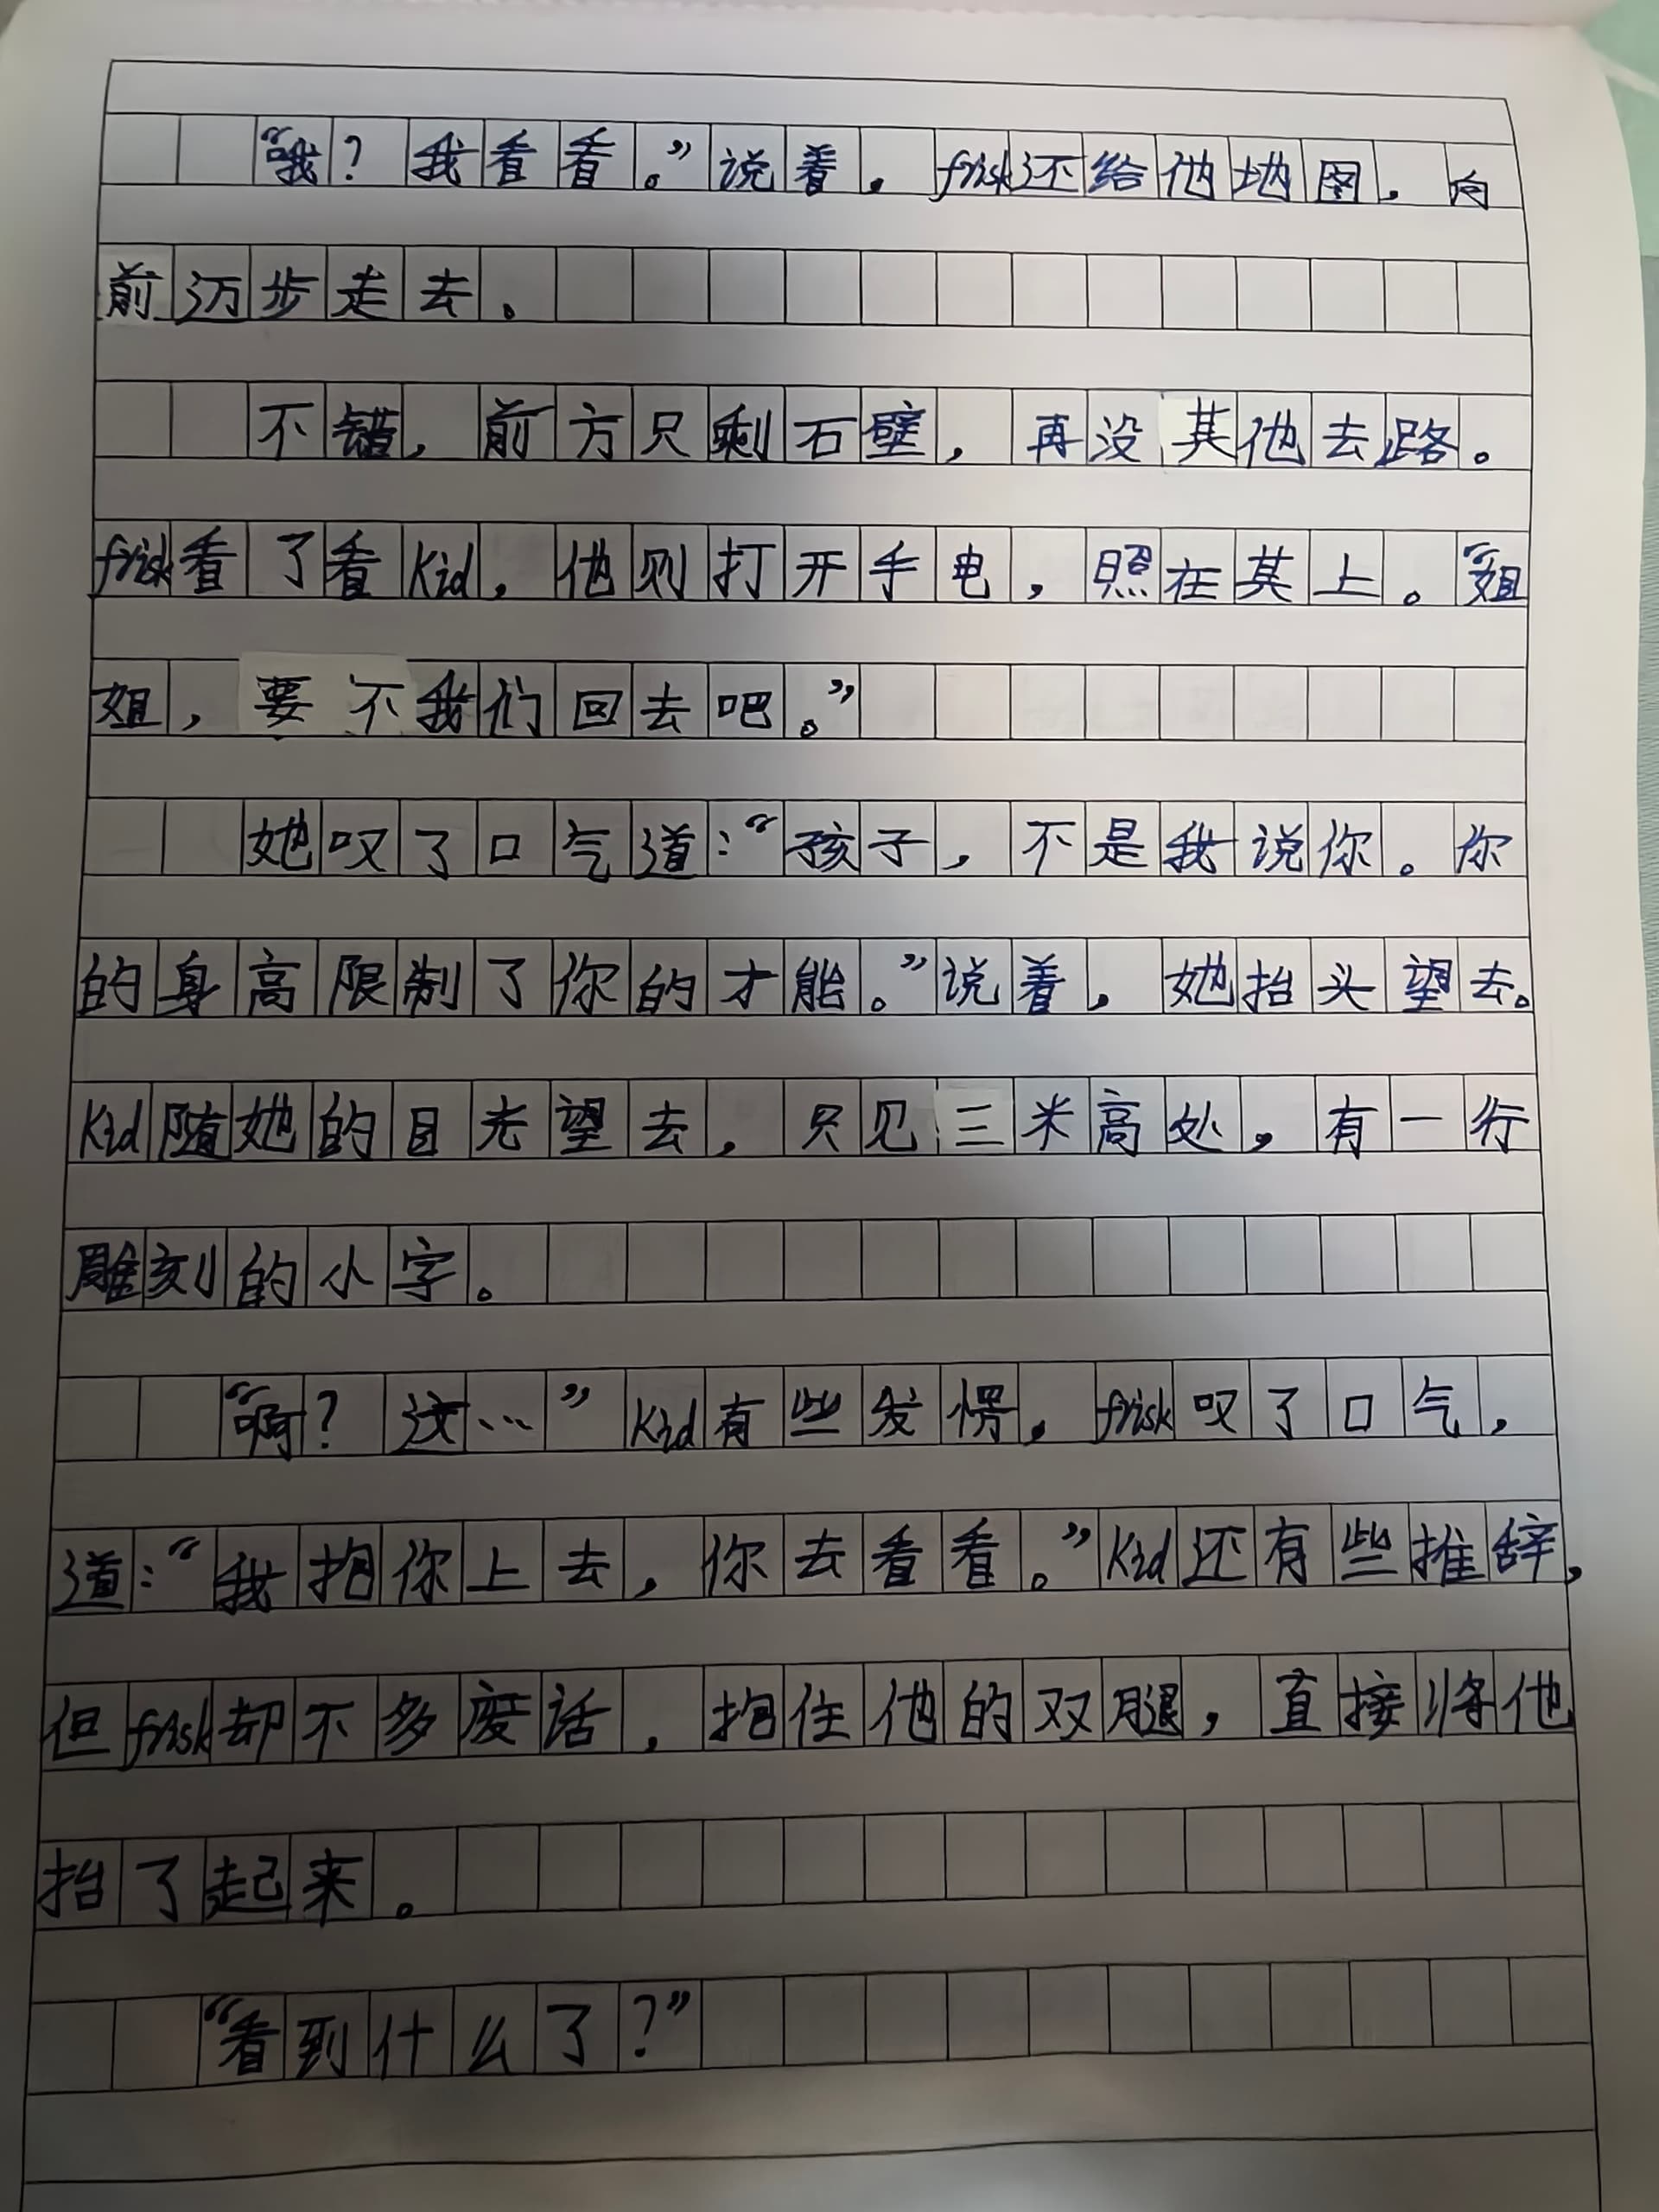 “哦？我看看。”说着，frisk还给他地图，向
前迈步走去。
不错，前方只剩石壁，再没其他去路。
frisk看了看Kid，他则打开手电，照在其上。“姐
姐，要不我们回去吧。”
她叹了口气道：“孩子，不是我说你。你
的身高限制了你的才能。”说着，她抬头望去。
Kid随她的目光望去，只见三米高处，有一行
雕刻的小字。
“啊？这…”Kid有些发愣，frisk叹了口气，
道：“我抱你上去，你去看看。”Kid还有些推辞，
但frisk却不多废话，抱住他的双腿，直接将他
抬了起来。
“看到什么了？”